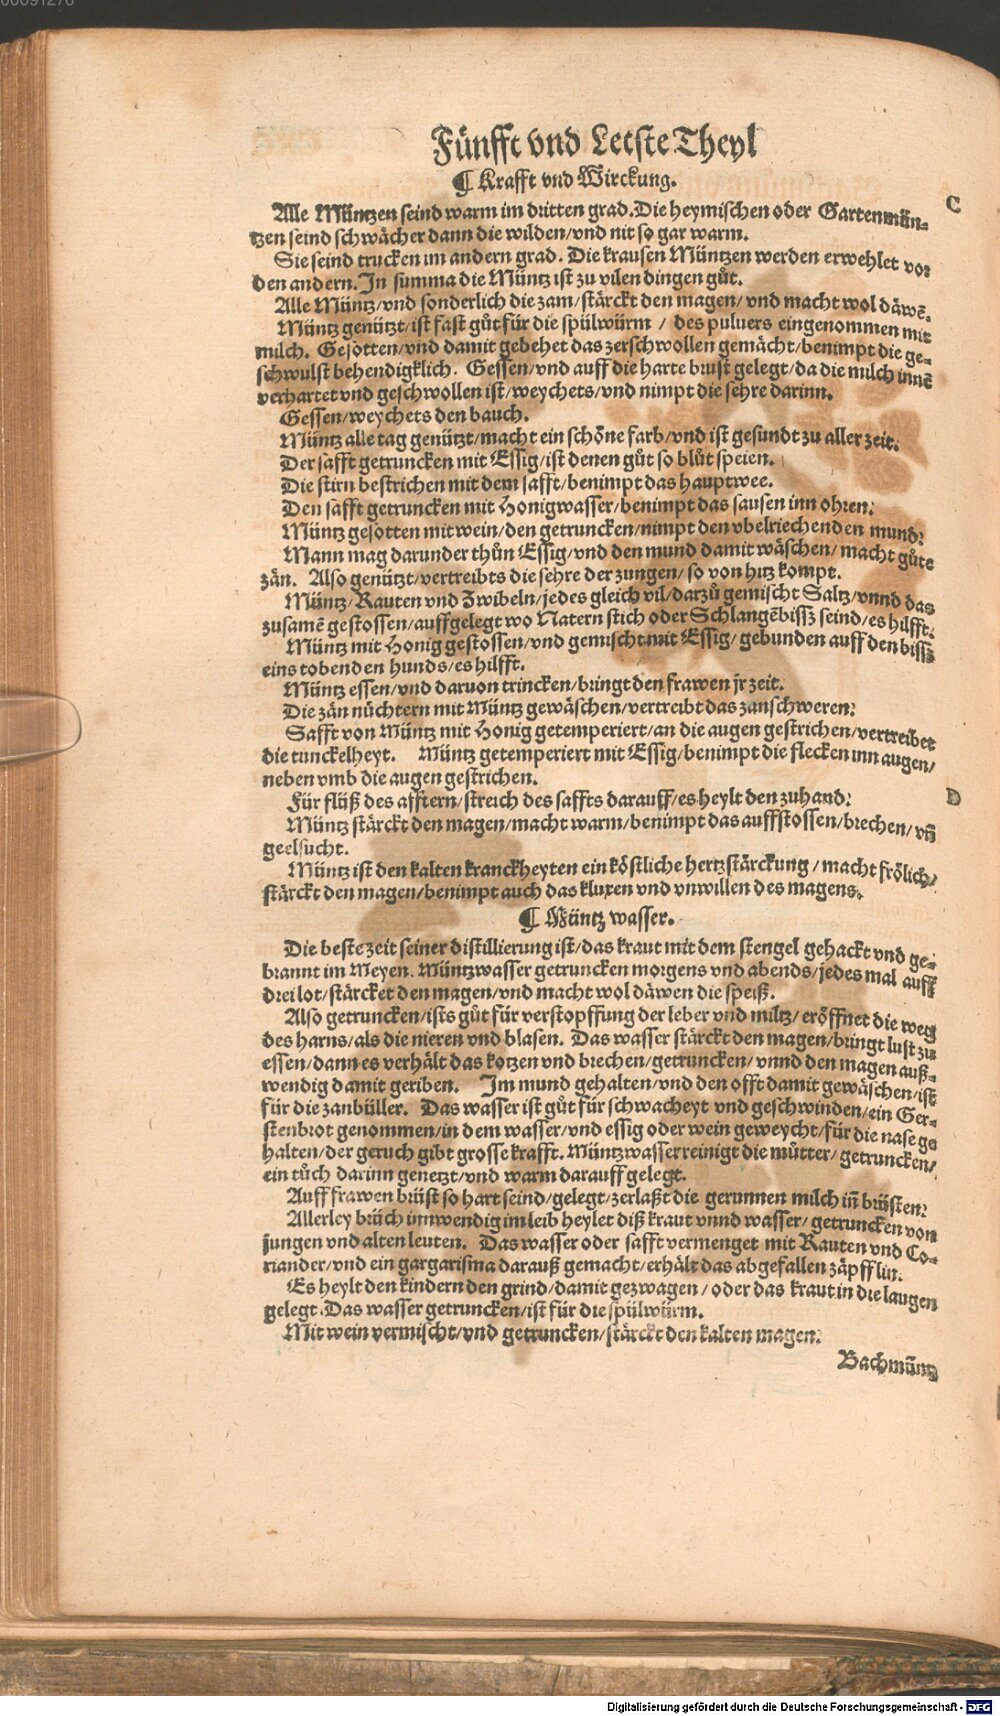 00091276
Fünfft vnd Letste Theyl
¶ Krafft vnd Wirckung.
C
Alle Müntzen seind warm im dritten grad. Die heymischen oder Gartenmün-
tzen seind schwächer dann die wilden/vnd nit so gar warm.
Sie seind trucken im andern grad. Die krausen Müntzen werden erwehlet vor
den andern. In summa die Müntz ist zu vilen dingen gůt.
Alle Müntz/vnd sonderlich die zam/stärckt den magen/vnd macht wol däwē.
Müntz genützt/ist fast gůt für die spülwürm / des puluers eingenommen mit
milch. Gesotten/vnd damit gebehet das zerschwollen gemächt/benimpt die ge-
schwulst behendigklich. Gessen/vnd auff die harte brust gelegt/da die milch innē
verhartet vnd geschwollen ist/weychets/vnd nimpt die sehre darinn.
Gessen/weychets den bauch.
Müntz alle tag genützt/macht ein schöne farb/vnd ist gesundt zu aller zeit.
Der safft getruncken mit Essig/ist denen gůt so blůt speien.
Die stirn bestrichen mit dem safft/benimpt das hauptwee.
Den safft getruncken mit Honigwasser/benimpt das sausen inn ohren.
Müntz gesotten mit wein/den getruncken/nimpt den vbelriechenden mund.
Mann mag darunder thůn Essig/vnd den mund damit wäschen/ macht gůte
zän. Also genützt/vertreibts die sehre der zungen/ so von hitz kompt.
Müntz/Rauten vnd Zwibeln/jedes gleich vil/darzů gemischt Saltz/vnnd das
zusamē gestossen/auffgelegt wo Natern stich oder Schlangēbissz seind/es hilfft.
Müntz mit Honig gestossen/vnd gemischt mit Essig/ gebunden auff den bissz
eins tobenden hunds/es hilfft.
Müntz essen/vnd daruon trincken/bringt den frawen jr zeit.
Die zän nüchtern mit Müntz gewäschen/vertreibt das zanschweren.
Safft von Müntz mit Honig getemperiert/an die augen gestrichen/vertreibet
die tunckelheyt. Müntz getemperiert mit Essig/benimpt die flecken inn augen/
neben vmb die augen gestrichen.
D
Für flüß des afftern/streich des saffts darauff/es heylt den zuhand.
Müntz stärckt den magen/macht warm/benimpt das auffstossen/brechen/vñ
geelsucht.
Müntz ist den kalten kranckheyten ein köstliche hertzstärckung / macht frölich/
stärckt den magen/benimpt auch das kluxen vnd vnwillen des magens.
¶ Müntz wasser.
Die beste zeit seiner distillierung ist/das kraut mit dem stengel gehackt vnd ge-
brannt im Meyen. Müntzwasser getruncken morgens vnd abends/jedes mal auff
drei lot/stärcket den magen/vnd macht wol däwen die speiß.
Also getruncken/ists gůt für verstopffung der leber vnd miltz/ eröffnet die weg
des harns/als die nieren vnd blasen. Das wasser stärckt den magen/bringt lust zu
essen/dann es verhält das kotzen vnd brechen/getruncken/vnnd den magen auß-
wendig damit geriben. Im mund gehalten/vnd den offt damit gewäschen/ist
für die zanbüller. Das wasser ist gůt für schwacheyt vnd geschwinden/ein Ger-
stenbrot genommen/in dem wasser/vnd essig oder wein geweycht/für die nase ge
halten/der geruch gibt grosse krafft. Müntzwasser reinigt die můtter/ getruncken/
ein tůch darinn genetzt/vnd warm darauff gelegt.
Auff frawen brüst so hart seind/gelegt/zerlaßt die gerunnen milch iñ brüsten.
Allerley brüch innwendig im leib heylet diß kraut vnnd wasser/ getruncken von
jungen vnd alten leuten. Das wasser oder safft vermenget mit Rauten vnd Co-
riander/vnd ein gargarisma darauß gemacht/erhält das abgefallen zäpfflin.
Es heylt den kindern den grind/damit gezwagen / oder das kraut in die laugen
gelegt. Das wasser getruncken/ist für die spülwürm.
Mit wein vermischt/vnd getruncken/stärckt den kalten magen.
Bachmüntz
Digitalisierung gefördert durch die Deutsche Forschungsgemeinschaft - DFG